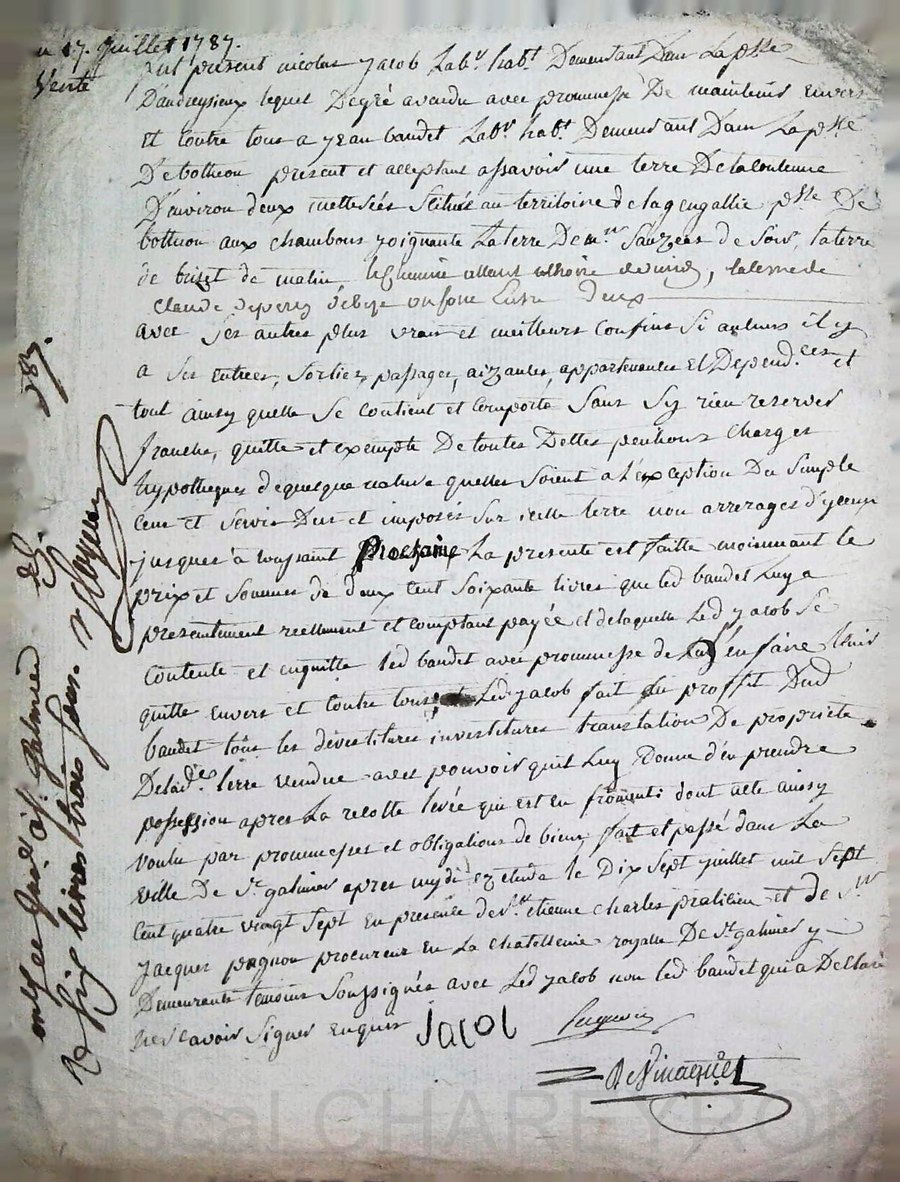 17. juillet 1787.
Vente
fut present nicolas jacob Lab.r hab.t Demeurant Dans La p.sse
D'andresieux lequel Degré a vandu avec promnesse De maintenir Envers
Et Contre tous a jean baudet Lab.r hab.t Demeurant Dans La p.sse
De botheon present et acceptant assavoir une terre De la Contenue
D'environ deux metterées Scituée au territoire de la p.sse De
bothion aux chambons joignante La terre De m.r de Soir, la terre
de de matin, le Chemin allant de midy, la terre de
Claude de bize
avec Ses autres plus vrais et meilleurs Confins Si aucuns il y
a Ses Entrées, Sorties, passages, aizances, appartenances Et Depend.ces et
tout ainsy quelle Se Contient et Comporte Sans Sy rien reserver
franche, quitte et exempte De toutes Dettes penhons Charges
hypotheques de quesque nature quelles Soient a L'exception Du Simple
Cens et Servis Dus et imposés Sur icelle terre non arrerages d'yceux
jusques à toussaint Prochaine La presente est faitte moiennant le
prix et Somme de deux Cent Soixante livres que led baudet Luy a
presentement reellement et Comptant payée et de laquelle Led jacob Se
Contente et en quitte led baudet avec promnesse de en faire tenir
quitte envers et Contre tous, Led jacob fait au proffit Dud
baudet tous les devestitures investitures translation De proprieté
De lad.e terre vendue avec pouvoir quil Luy Donne d'en prendre
possession apres La recolte levée qui est en froment dont acte ainsy
Voulu par promnesses et obligations de biens, fait et passé dans La
Ville De S.t galmier apres mydi ez etude le Dix Sept juillet mil Sept
Cent quatre vingt Sept En presence de S.r etienne Charles praticien et de S.r
jacques pagnon procureur En La Chatellenie royalle De S.t galmier y
Demeurants temoins Soussignés avec Led jacob non led baudet qui a Declaré
ne Scavoir Signer Enquis
Jacol
787.
galmier
Six livres trois Sous
Pascal CHAREYRON